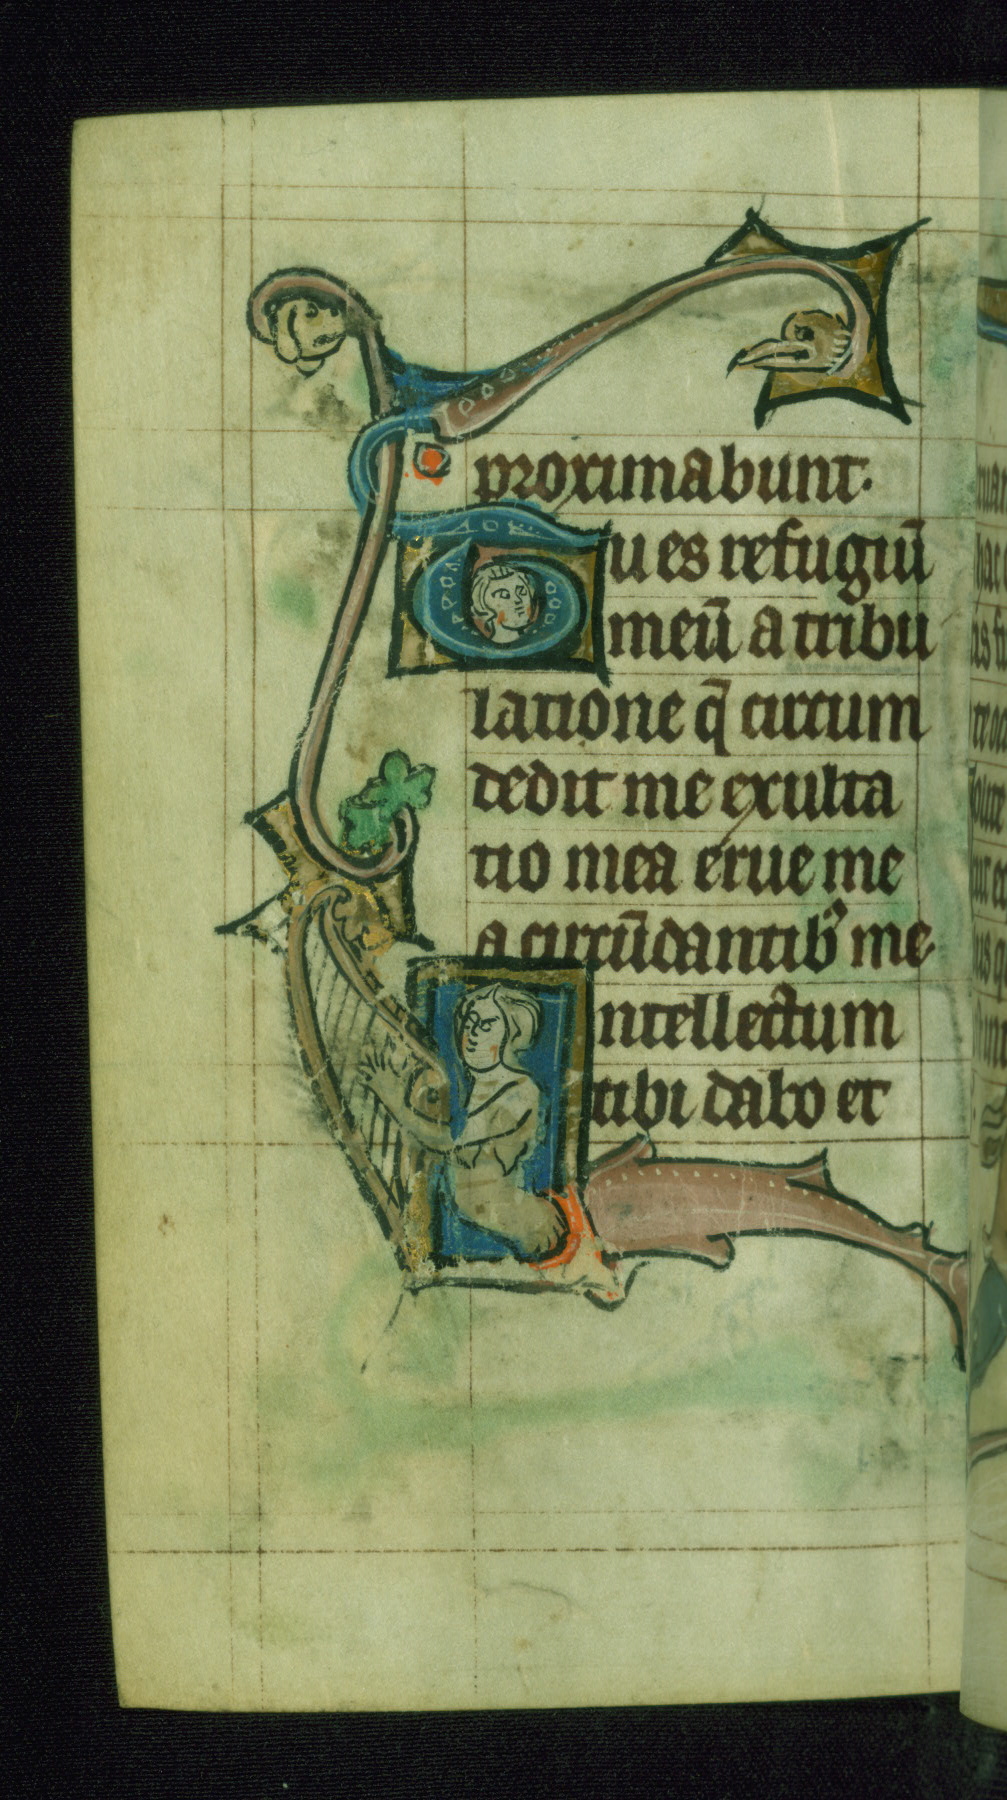 proximabunt.
Tu es refugiū
meū a tribu
latione q̄ circum
dedit me exulta
tio mea erue me
a circūdantib᷒ me.
Intellectum
tibi dabo et